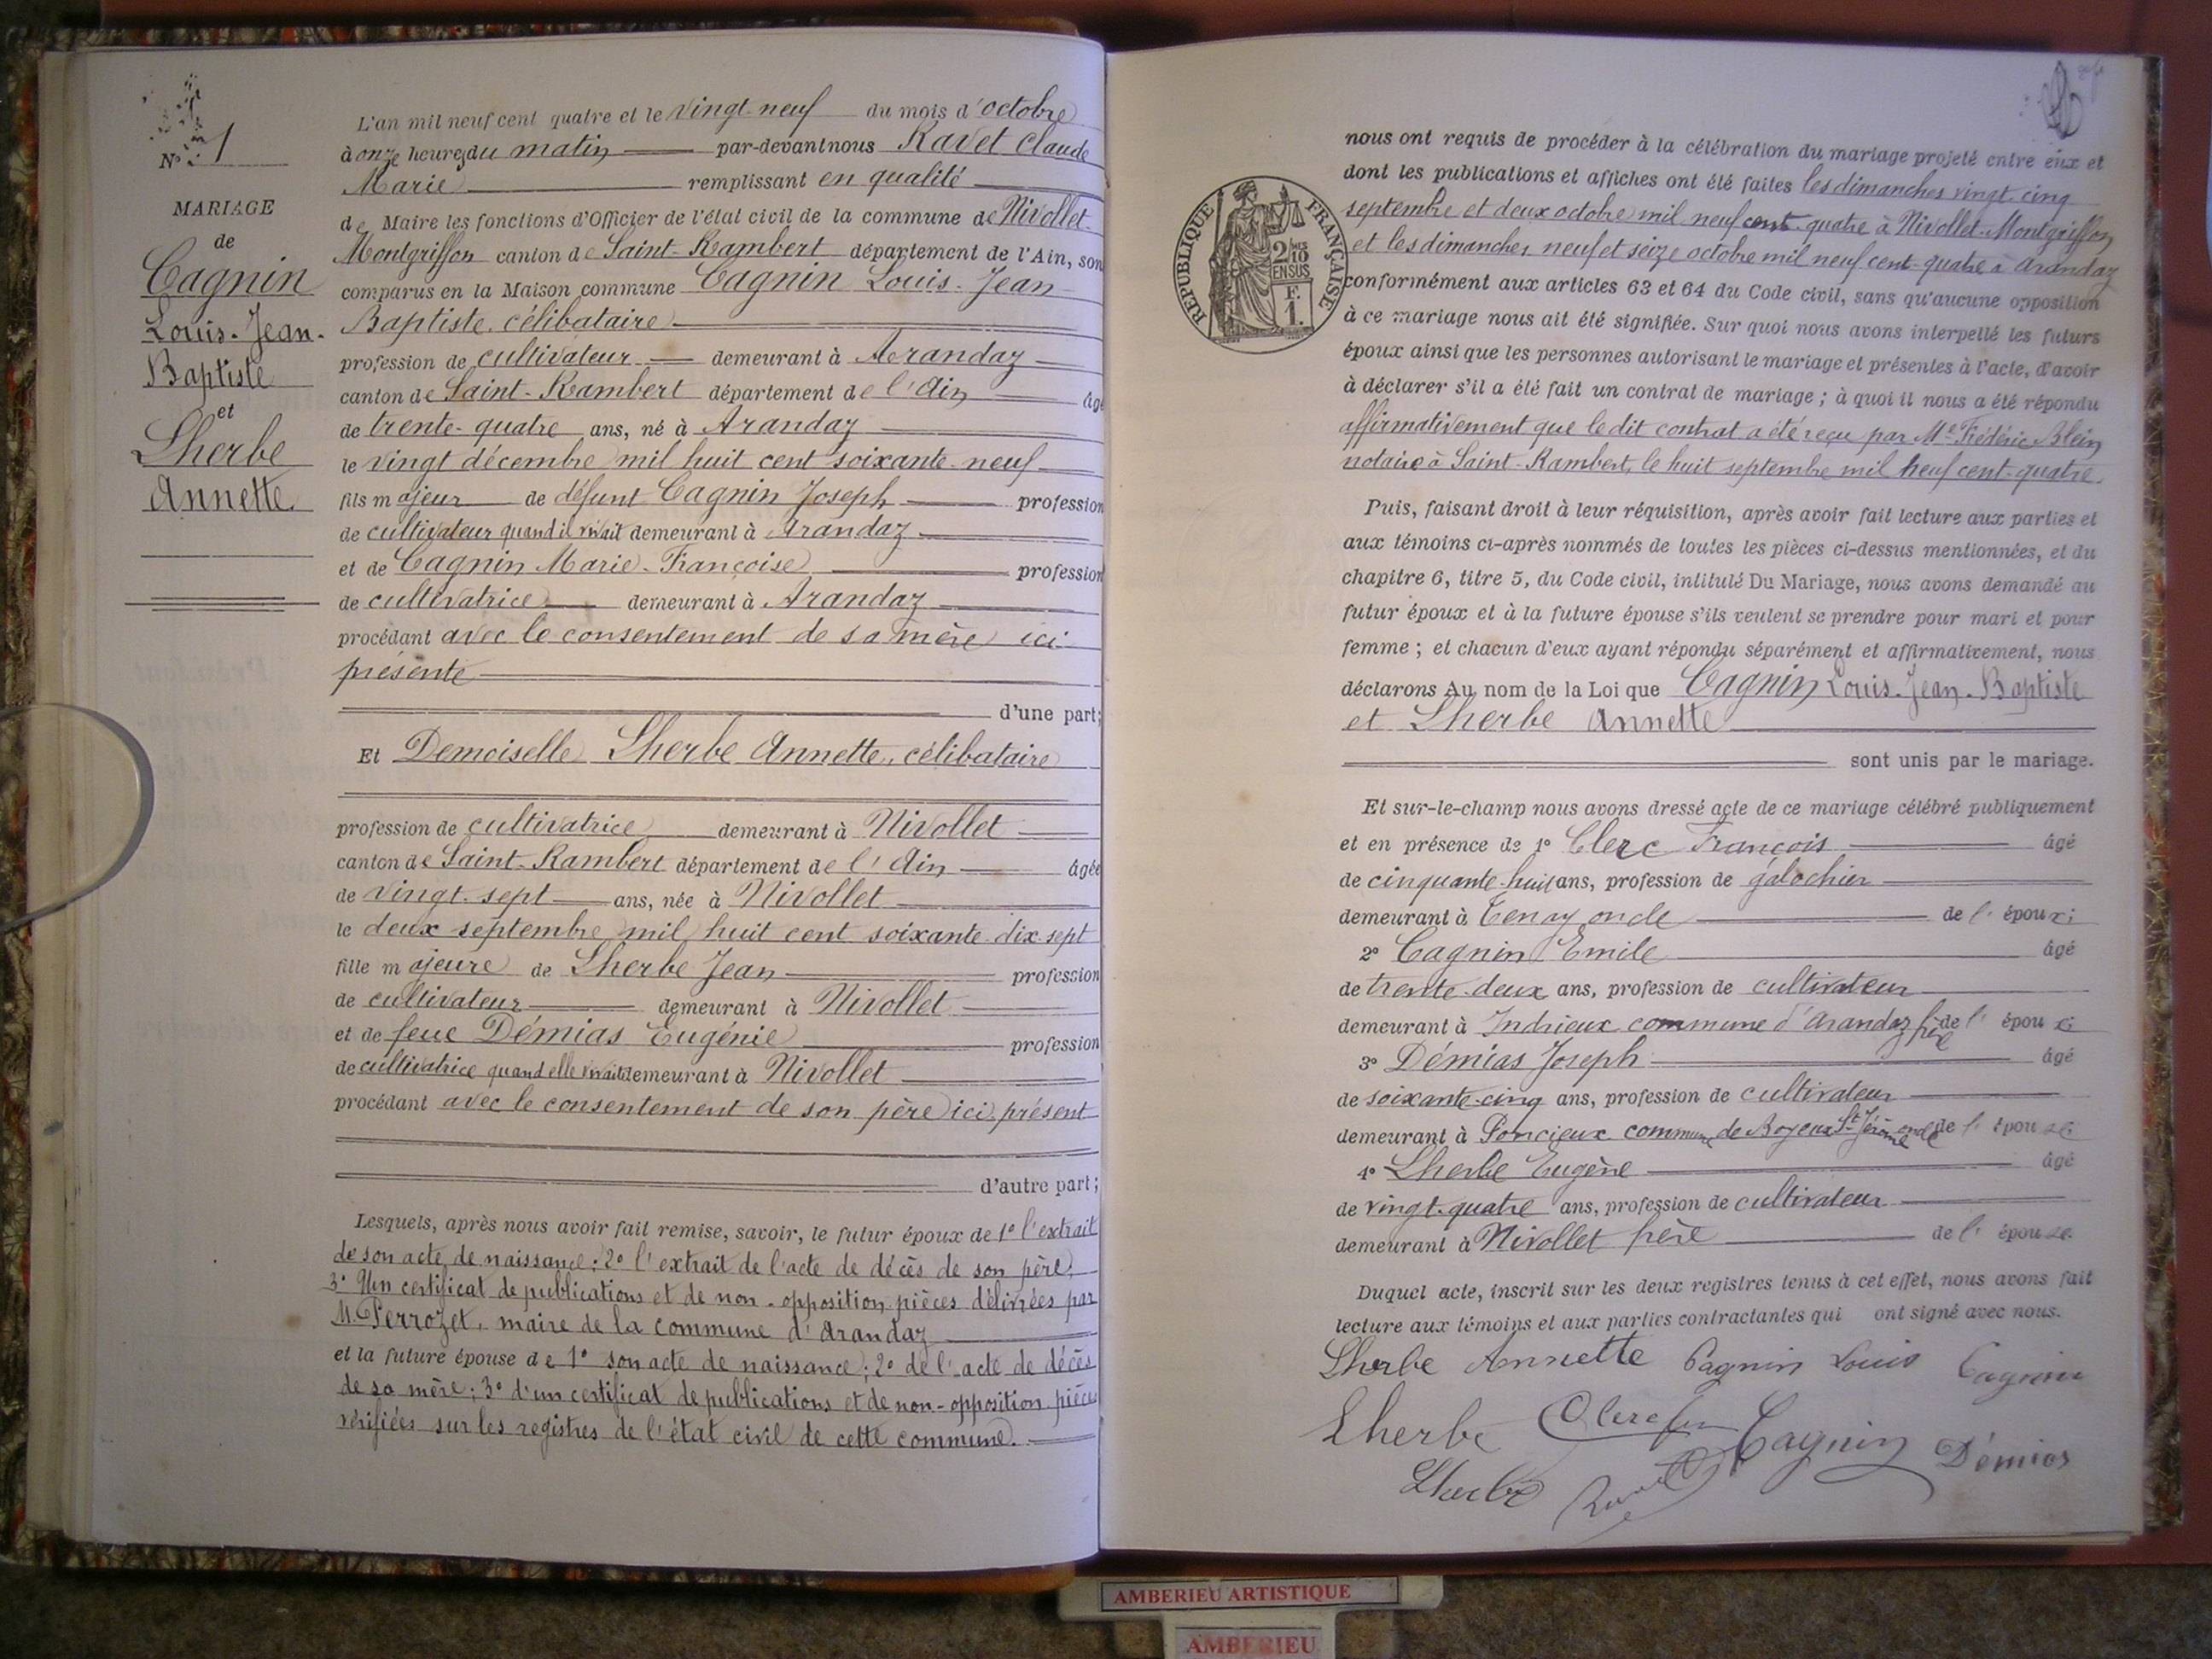 N° 1
MARIAGE
de
Cagnin
Louis-Jean-
Baptiste
et
Lherbe
Annette
L'an mil neuf cent quatre et le vingt-neuf du mois d'octobre
à onze heures du matin par-devant nous Ravet Claude
Marie remplissant en qualité
de Maire les fonctions d'Officier de l'état civil de la commune de Nivollet-
Montgriffon canton de Saint-Rambert département de l'Ain, son
comparus en la Maison commune Cagnin Louis-Jean-
Baptiste, célibataire
profession de cultivateur demeurant à Arandaz
canton de Saint-Rambert département de l'Ain âgé
de trente-quatre ans, né à Arandaz
le vingt décembre mil huit cent soixante-neuf
fils majeur de défunt Cagnin Joseph profession
de cultivateur quand il vivait demeurant à Arandaz
et de Cagnin Marie-Françoise profession
de cultivatrice demeurant à Arandaz
procédant avec le consentement de sa mère ici
présente
d'une part;
Et Demoiselle Lherbe Annette, célibataire
profession de cultivatrice demeurant à Nivollet
canton de Saint-Rambert département de l'Ain âgée
de vingt-sept ans, née à Nivollet
le deux septembre mil huit cent soixante-dix-sept
fille majeure de Lherbe Jean profession
de cultivateur demeurant à Nivollet
et de feue Démias Eugénie profession
de cultivatrice quand elle vivait demeurant à Nivollet
procédant avec le consentement de son père ici présent
d'autre part;
Lesquels, après nous avoir fait remise, savoir, le futur époux de 1° l'extrait
de son acte de naissance; 2° l'extrait de l'acte de décès de son père;
3° Un certificat de publications et de non-opposition pièces délivrées par
M. Perrozet, maire de la commune d'Arandaz
et la future épouse de 1° son acte de naissance; 2° de l'acte de décès
de sa mère; 3° d'un certificat de publications et de non-opposition pièces
vérifiées sur les registres de l'état civil de cette commune.
REPUBLIQUE FRANÇAISE
2/10
EN SUS
F.
1.
nous ont requis de procéder à la célébration du mariage projeté entre eux et
dont les publications et affiches ont été faites les dimanches vingt-cinq
septembre et deux octobre mil neuf cent-quatre à Nivollet-Montgriffon
et les dimanches neuf et seize octobre mil neuf cent-quatre à Arandaz
conformément aux articles 63 et 64 du Code civil, sans qu'aucune opposition
à ce mariage nous ait été signifiée. Sur quoi nous avons interpellé les futurs
époux ainsi que les personnes autorisant le mariage et présentes à l'acte, d'avoir
à déclarer s'il a été fait un contrat de mariage; à quoi il nous a été répondu
affirmativement que le dit contrat a été reçu par Me Frédéric Blein
notaire à Saint-Rambert, le huit septembre mil neuf cent-quatre.
Puis, faisant droit à leur réquisition, après avoir fait lecture aux parties et
aux témoins ci-après nommés de toutes les pièces ci-dessus mentionnées, et du
chapitre 6, titre 5, du Code civil, intitulé Du Mariage, nous avons demandé au
futur époux et à la future épouse s'ils veulent se prendre pour mari et pour
femme; et chacun d'eux ayant répondu séparément et affirmativement, nous
déclarons Au nom de la Loi que Cagnin Louis-Jean-Baptiste
et Lherbe Annette
sont unis par le mariage.
Et sur-le-champ nous avons dressé acte de ce mariage célébré publiquement
et en présence de 1° Clerc François âgé
de cinquante-huit ans, profession de galochier
demeurant à Tenay oncle de l'époux;
2° Cagnin Emile âgé
de trente-deux ans, profession de cultivateur
demeurant à Indrieux commune d'Arandaz frère de l'époux;
3° Démias Joseph âgé
de soixante-cinq ans, profession de cultivateur
demeurant à Poncieux commune de Boyeux St Jérôme oncle de l'épouse;
4° Lherbe Eugène âgé
de vingt-quatre ans, profession de cultivateur
demeurant à Nivollet frère de l'épouse.
Duquel acte, inscrit sur les deux registres tenus à cet effet, nous avons fait
lecture aux témoins et aux parties contractantes qui ont signé avec nous.
Lherbe Annette Cagnin Louis Cagnin
Lherbe Clerc fr Cagnin Démias
Lherbe Ravet
AMBERIEU ARTISTIQUE
AMBERIEU